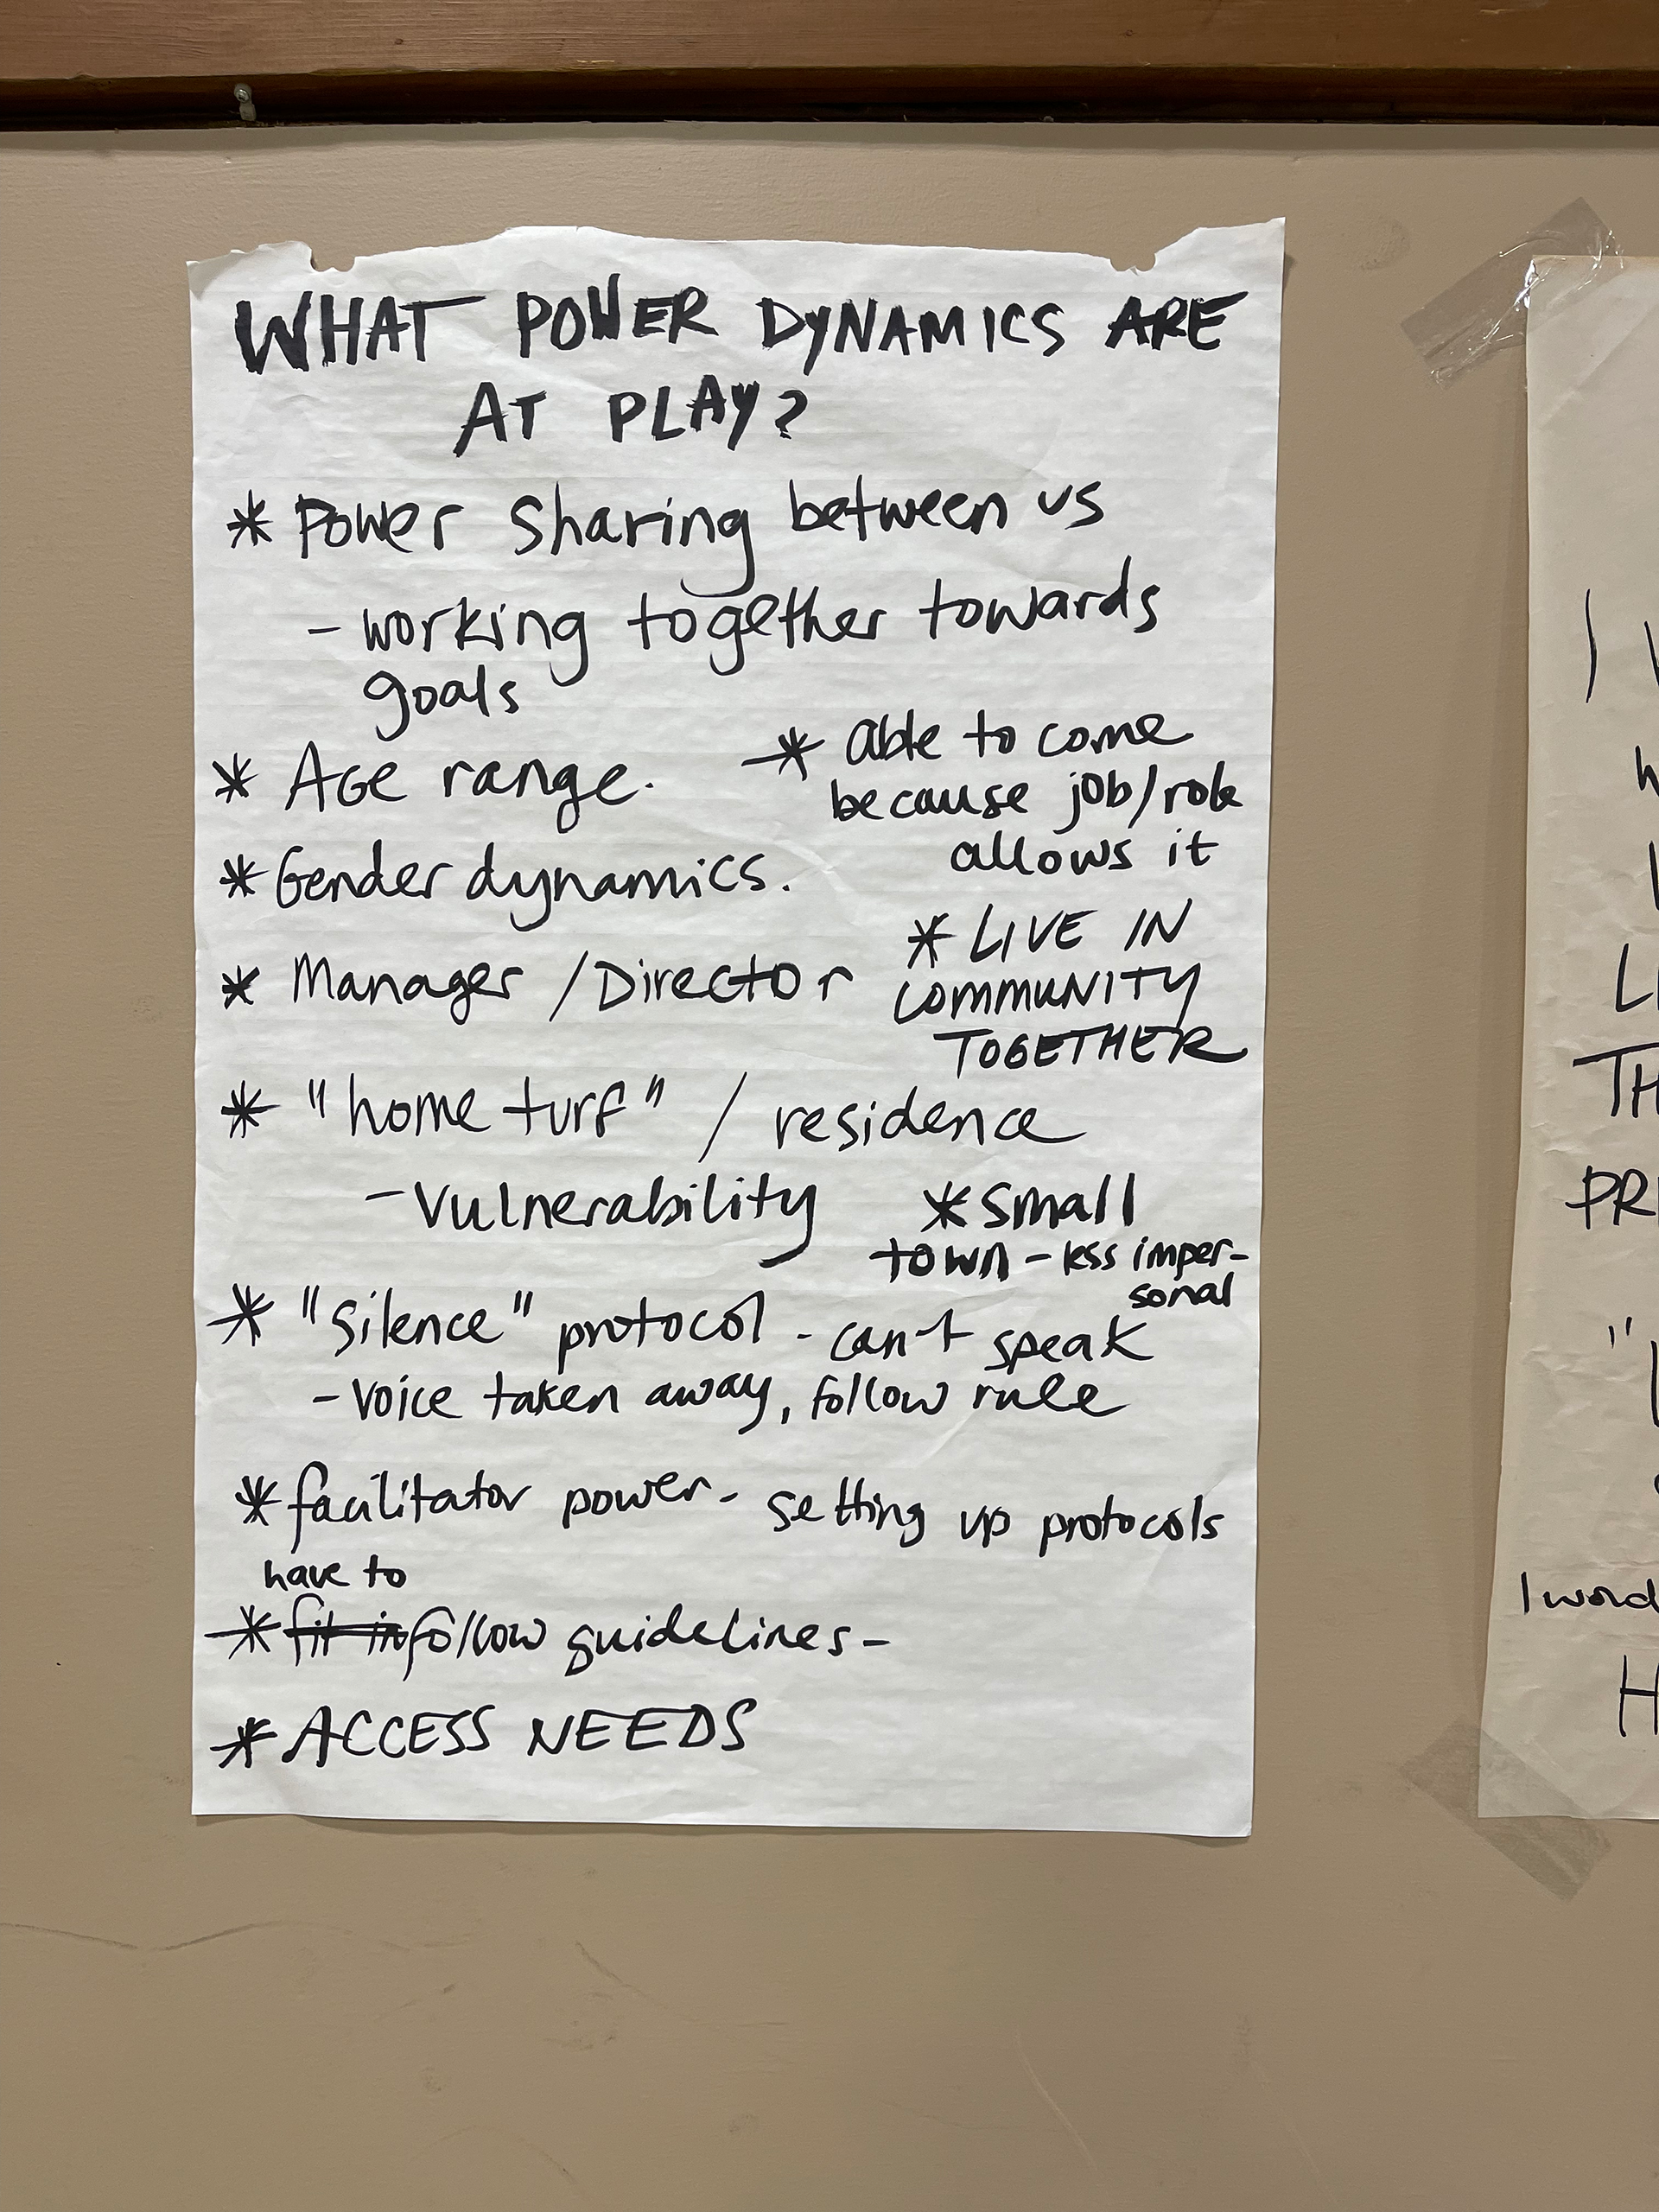 WHAT POWER DYNAMICS ARE
AT PLAY?
* Power sharing between us
- working together towards
goals
* Age range.
* able to come
because job/role
allows it
* Gender dynamics.
* Manager / Director
* LIVE IN
COMMUNITY
TOGETHER
* "home turf" / residence
- Vulnerability
* small
town - less imper-
sonal
* "silence" protocol - can't speak
- voice taken away, follow rule
* facilitator power - setting up protocols
have to
* fit in follow guidelines -
* ACCESS NEEDS
I
TH
PR
I word
H